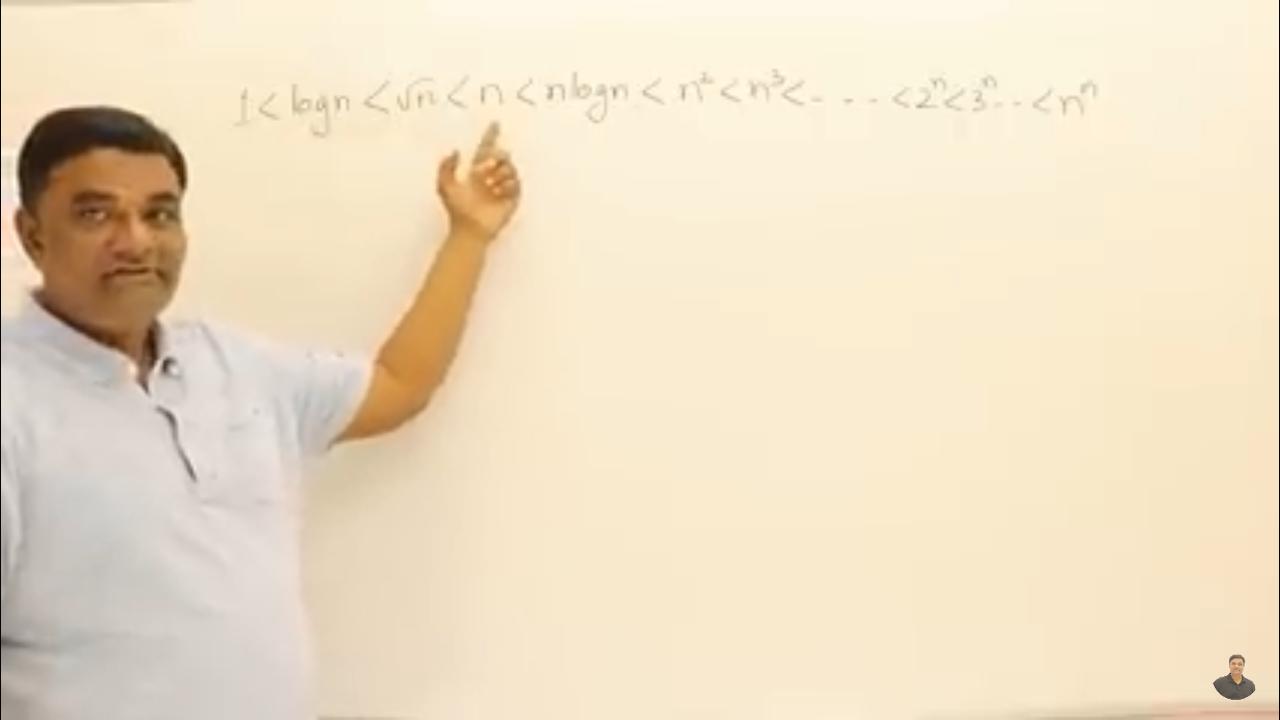 1 < logn < √n < n < nlogn < n² < n³ < - - - < 2ⁿ < 3ⁿ - - < nⁿ